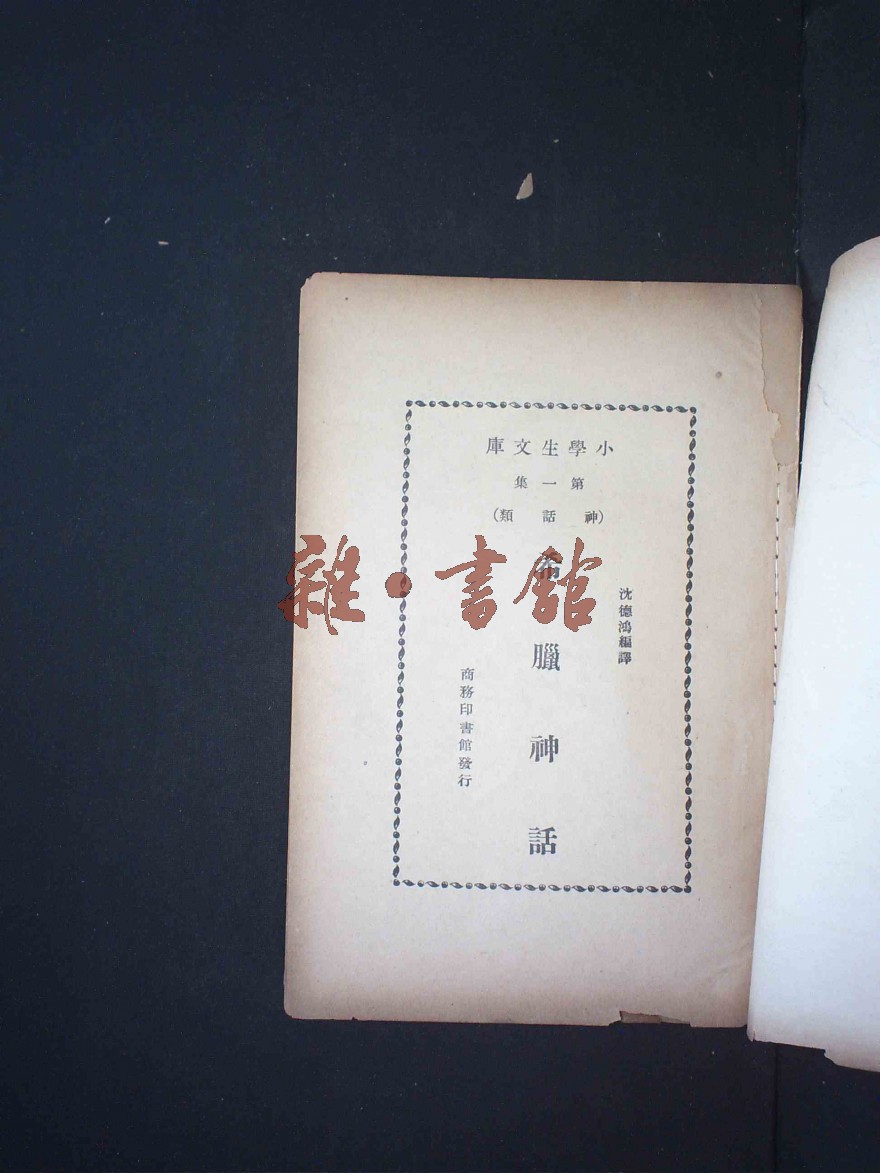 小學生文庫
第一集
(神話類)
沈德鴻編譯
希臘神話
商務印書館發行
雜·書館